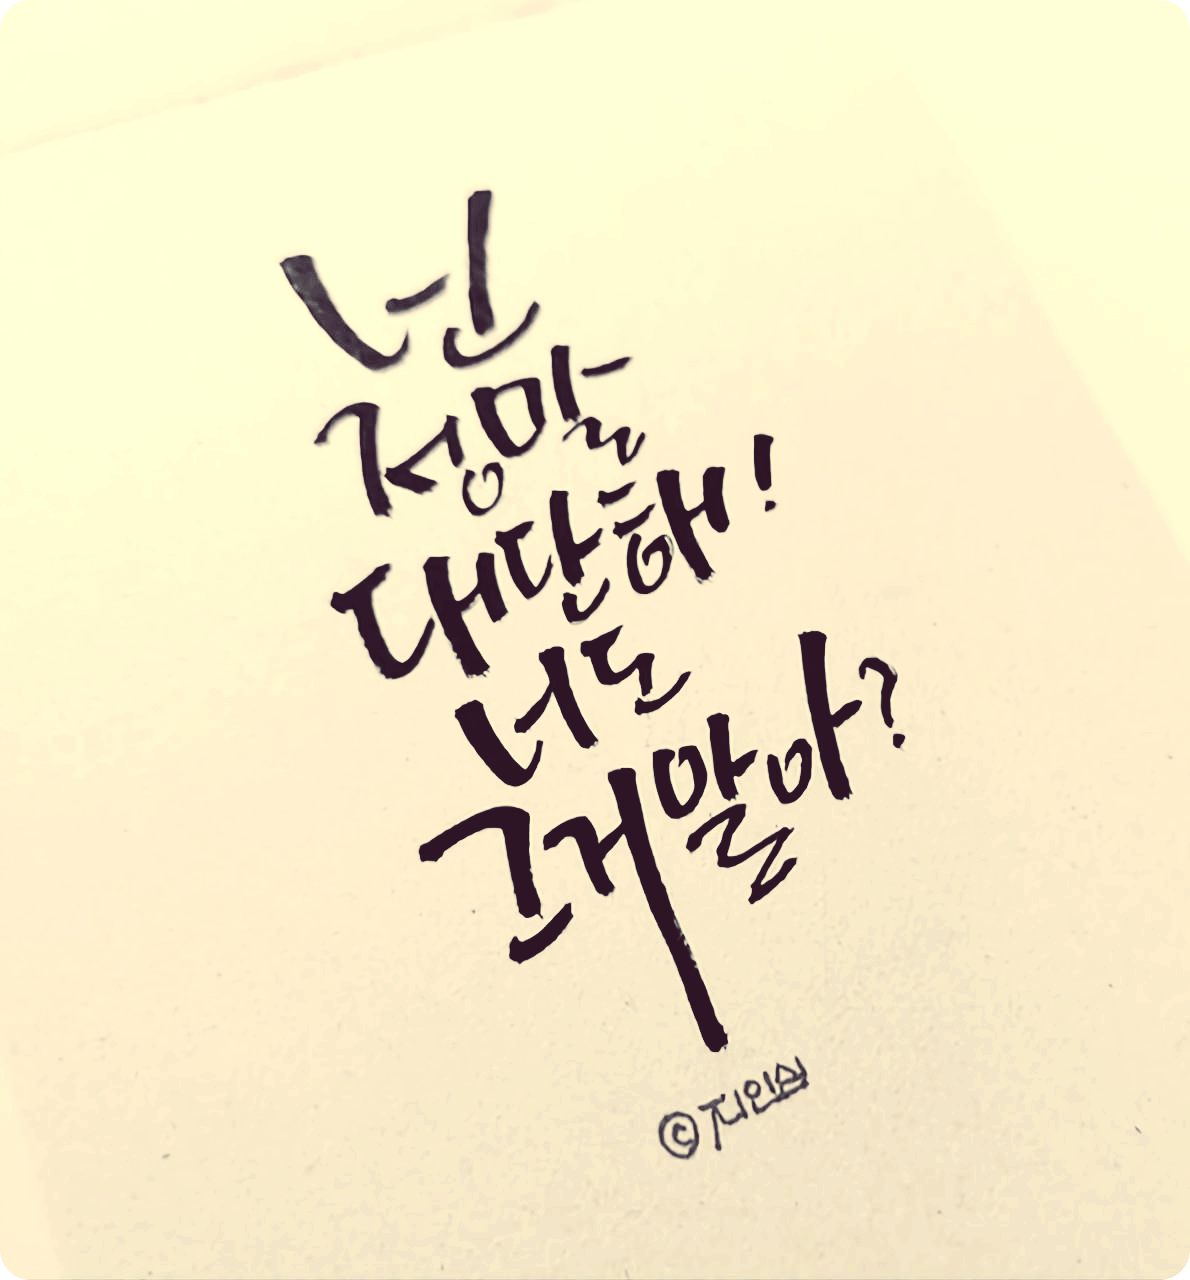 넌
정말
대단해!
너도
그거 알아?